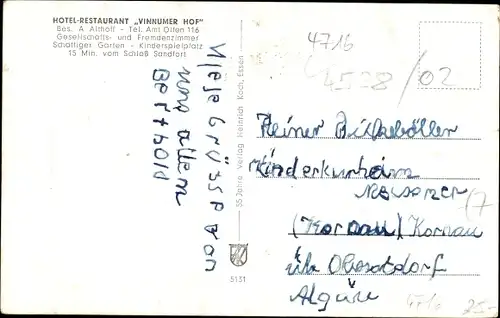 HOTEL-RESTAURANT „VINNUMER HOF"
Bes. A. Althoff - Tel. Amt Olfen 116
Gesellschafts- und Fremdenzimmer
Schattiger Garten - Kinderspielplatz
15 Min. vom Schloß Sandfort
4716
4528/02
Viele Grüsse von
uns allem
Berthold
55 Jahre Verlag Heinrich Koch, Essen
5131
Heiner
Kinderkurheim
(Kornau) Kornau
üb Obersdorf
Algäue
25.-